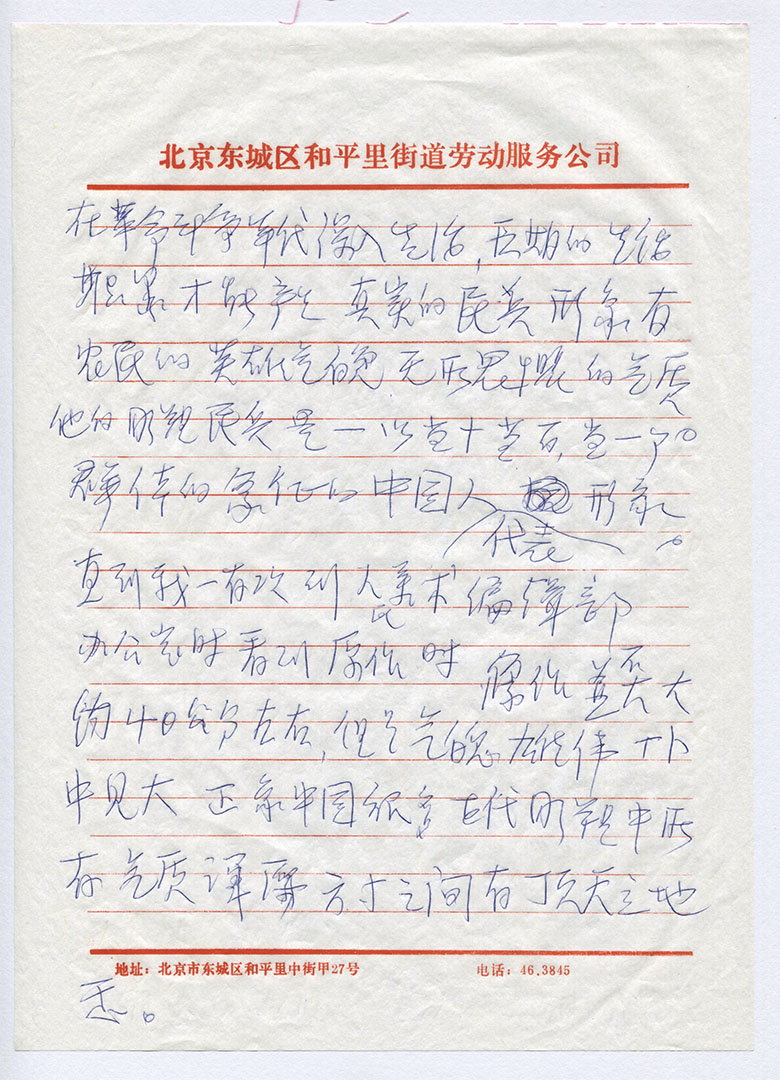 北京东城区和平里街道劳动服务公司
在革命斗争年代深入生活,长期的生活
积累才能产生真美的民兵形象有
农民的英雄气魄无形君毕限的气质
他的雕塑民兵是一以当十当百,当一个
群体的象征的中国人 形象。
代表
直到我一有次到人民美术编辑部
办公室时看到原作时 原作并不大
约40公分左右,但是气魄雄伟 小
中见大 正象中国很多古代雕塑中所
有气质浑厚方寸之间有顶天立地
地址:北京市东城区和平里中街甲27号 电话:46.3845
。